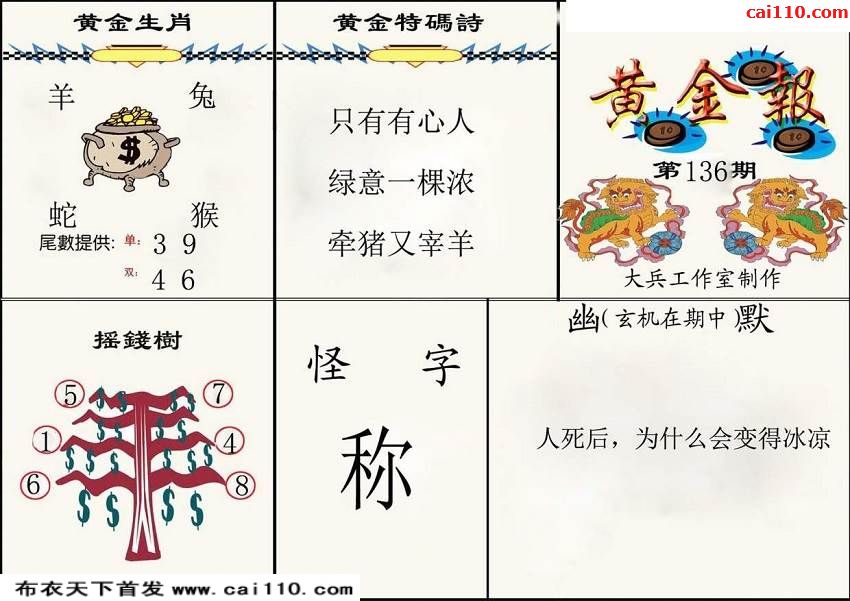 黄金生肖
羊 兔
$
蛇 猴
尾數提供: 单: 3 9
双: 4 6
黄金特碼詩
只有有心人
绿意一棵浓
牵猪又宰羊
cai110.com
黄金報
第136期
大兵工作室制作
摇錢樹
5 7
1 4
6 8
怪 字
称
幽(玄机在期中)默
人死后，为什么会变得冰凉
布衣天下首发 www.cai110.com